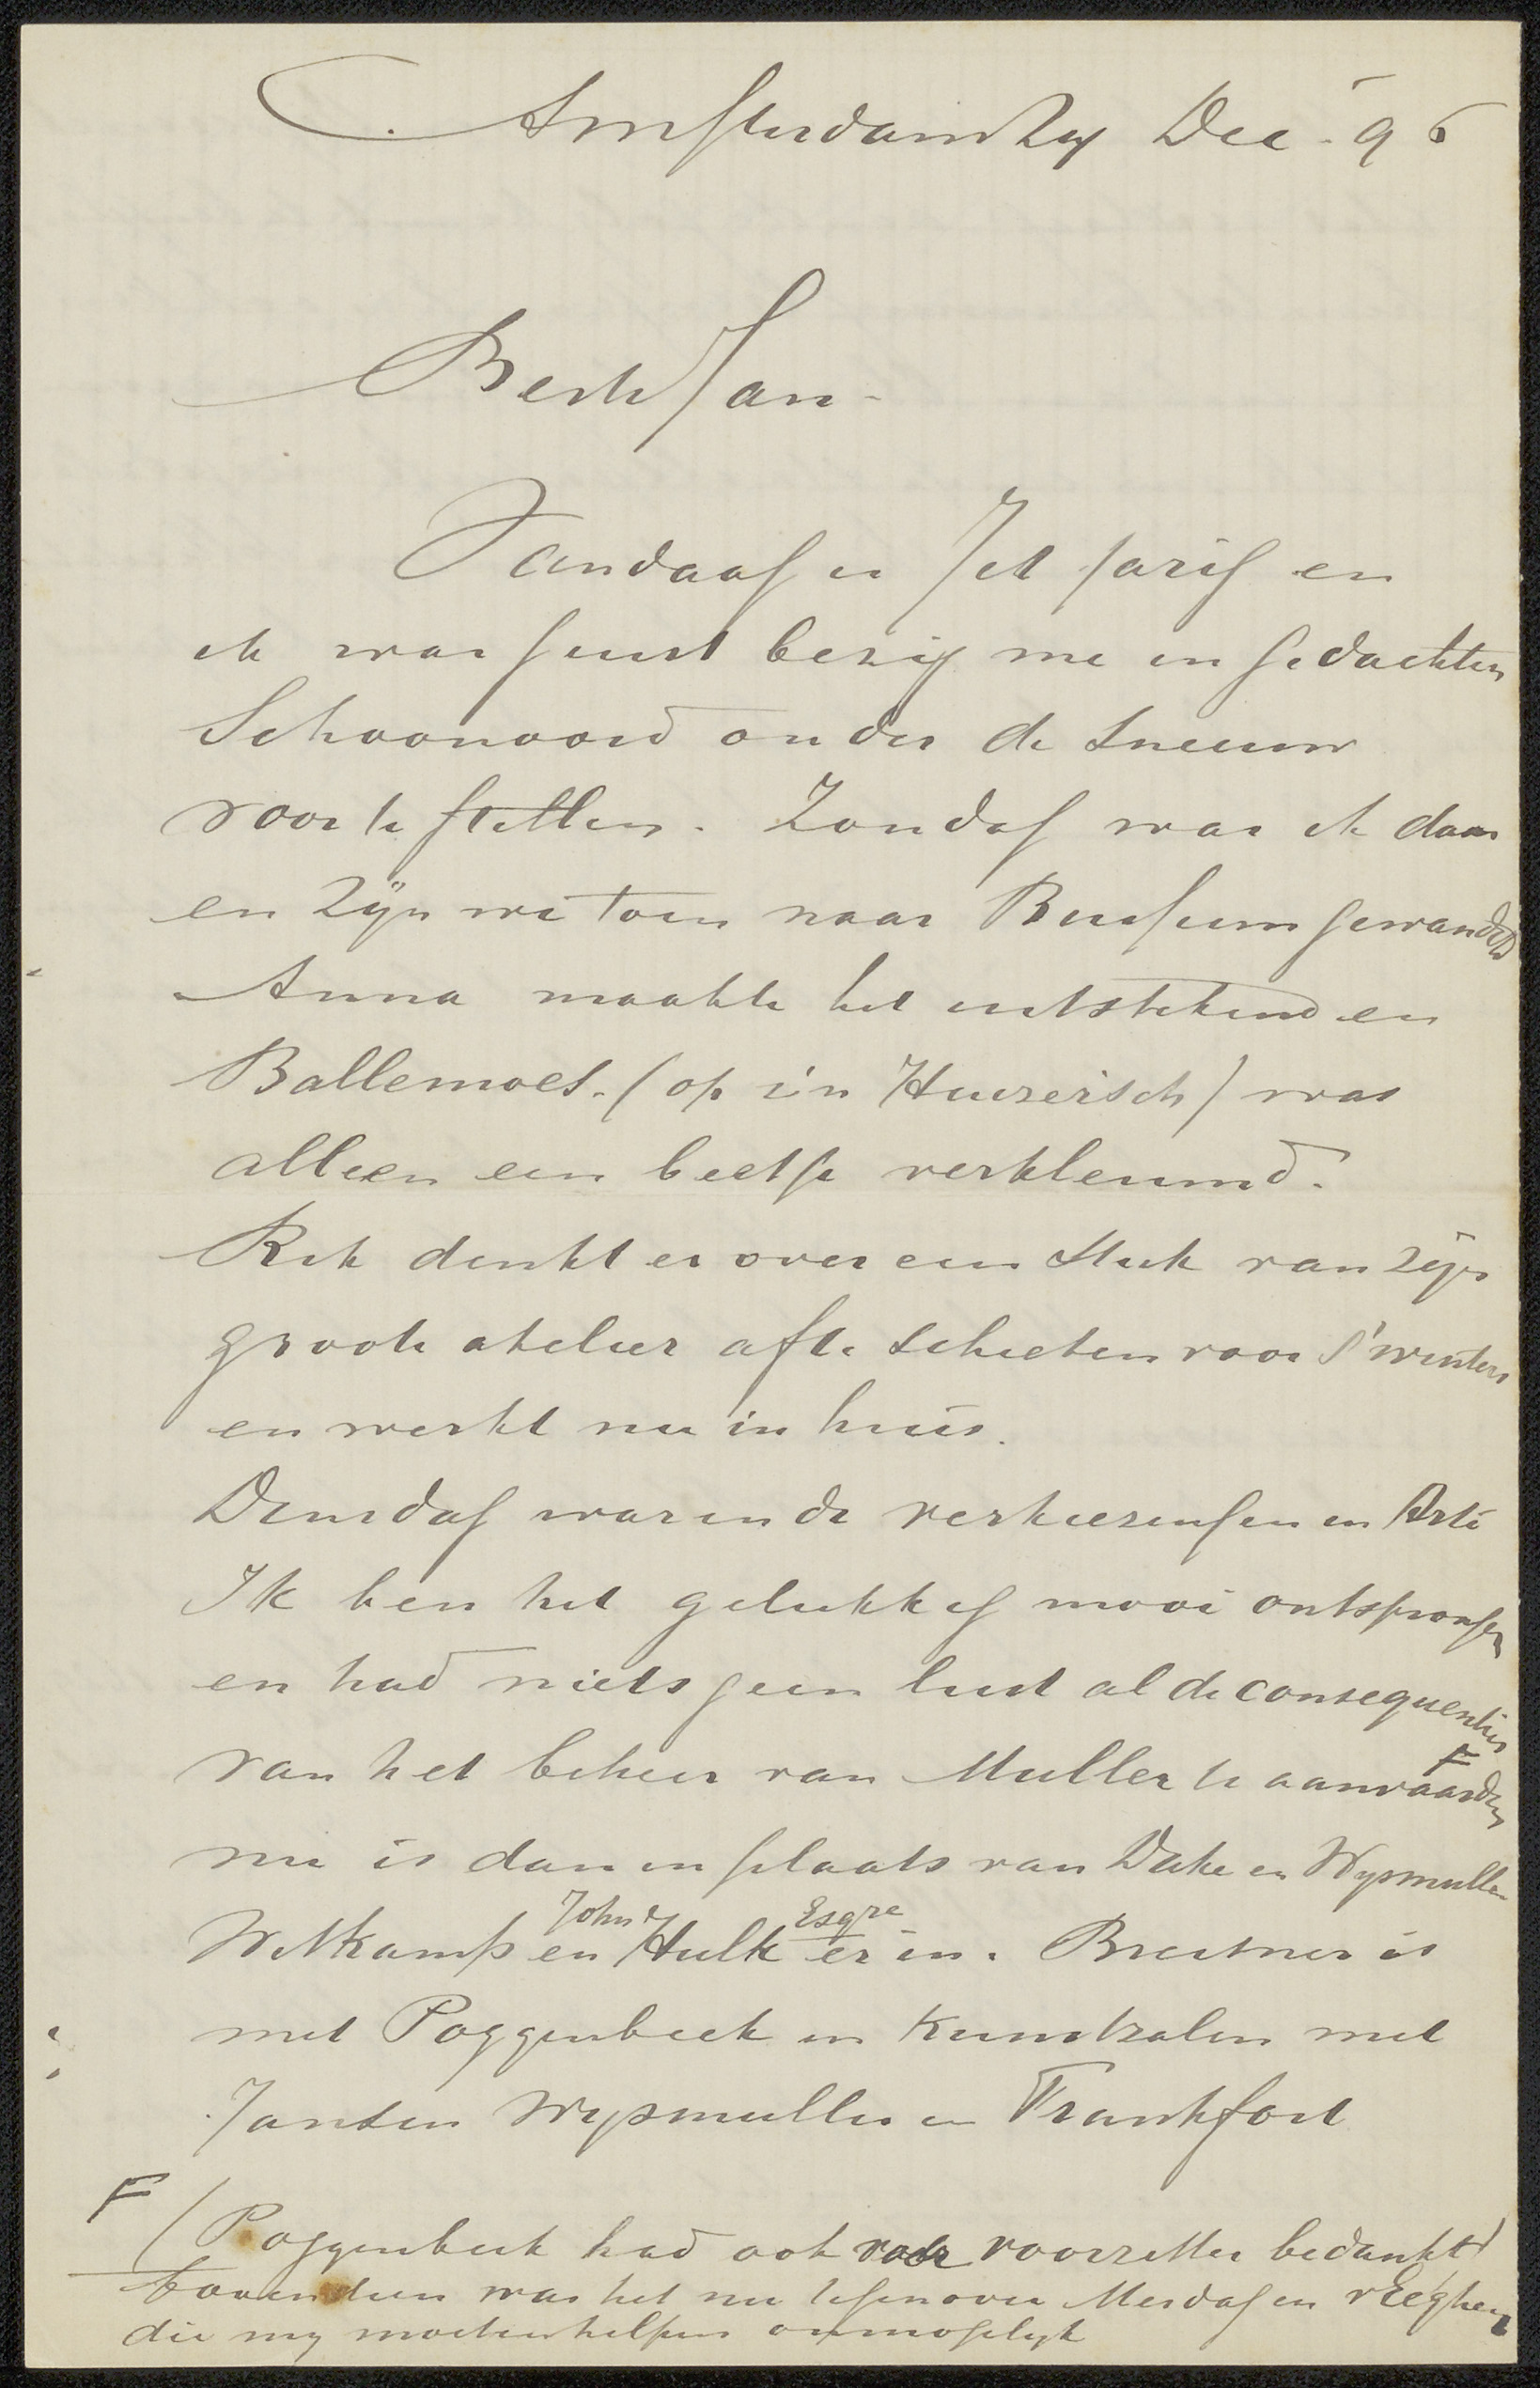 Amsterdam 24 Dec. '96
Beste Jan.
Vandaag is Jet jarig en
ik was juist bezig me in gedachten
Schoonoord onder de sneeuw
voor te stellen. Zondag was ik daar
en zijn we toen naar Bussum gewandeld
Anna maakte het uitstekend en
Ballemoes. (op z'n Huizerisch) was
alleen een beetje verkleumd.
Rik denkt er over een stuk van zijn
groote atelier af te schieten voor s'winters
en werkt nu in huis.
Dinsdag waren de verkiezingen in Arti
Ik ben het gelukkig mooi ontsprongen
en had niets geen lust al de consequenties
van het beheer van Muller te aanvaarden F
nu is dan in plaats van Dake en Wijsmuller
Witkamp en John F Hulk Esqre er in. Breitner is
met Poggenbeek in Kunstzalen met
Jansen Wijsmuller en Frankfort
F (Poggenbeek had ook voor voorzitter bedankt)
bovendien was het nu tegenover Mesdag en v Eeghen
die mij moeten helpen onmogelijk